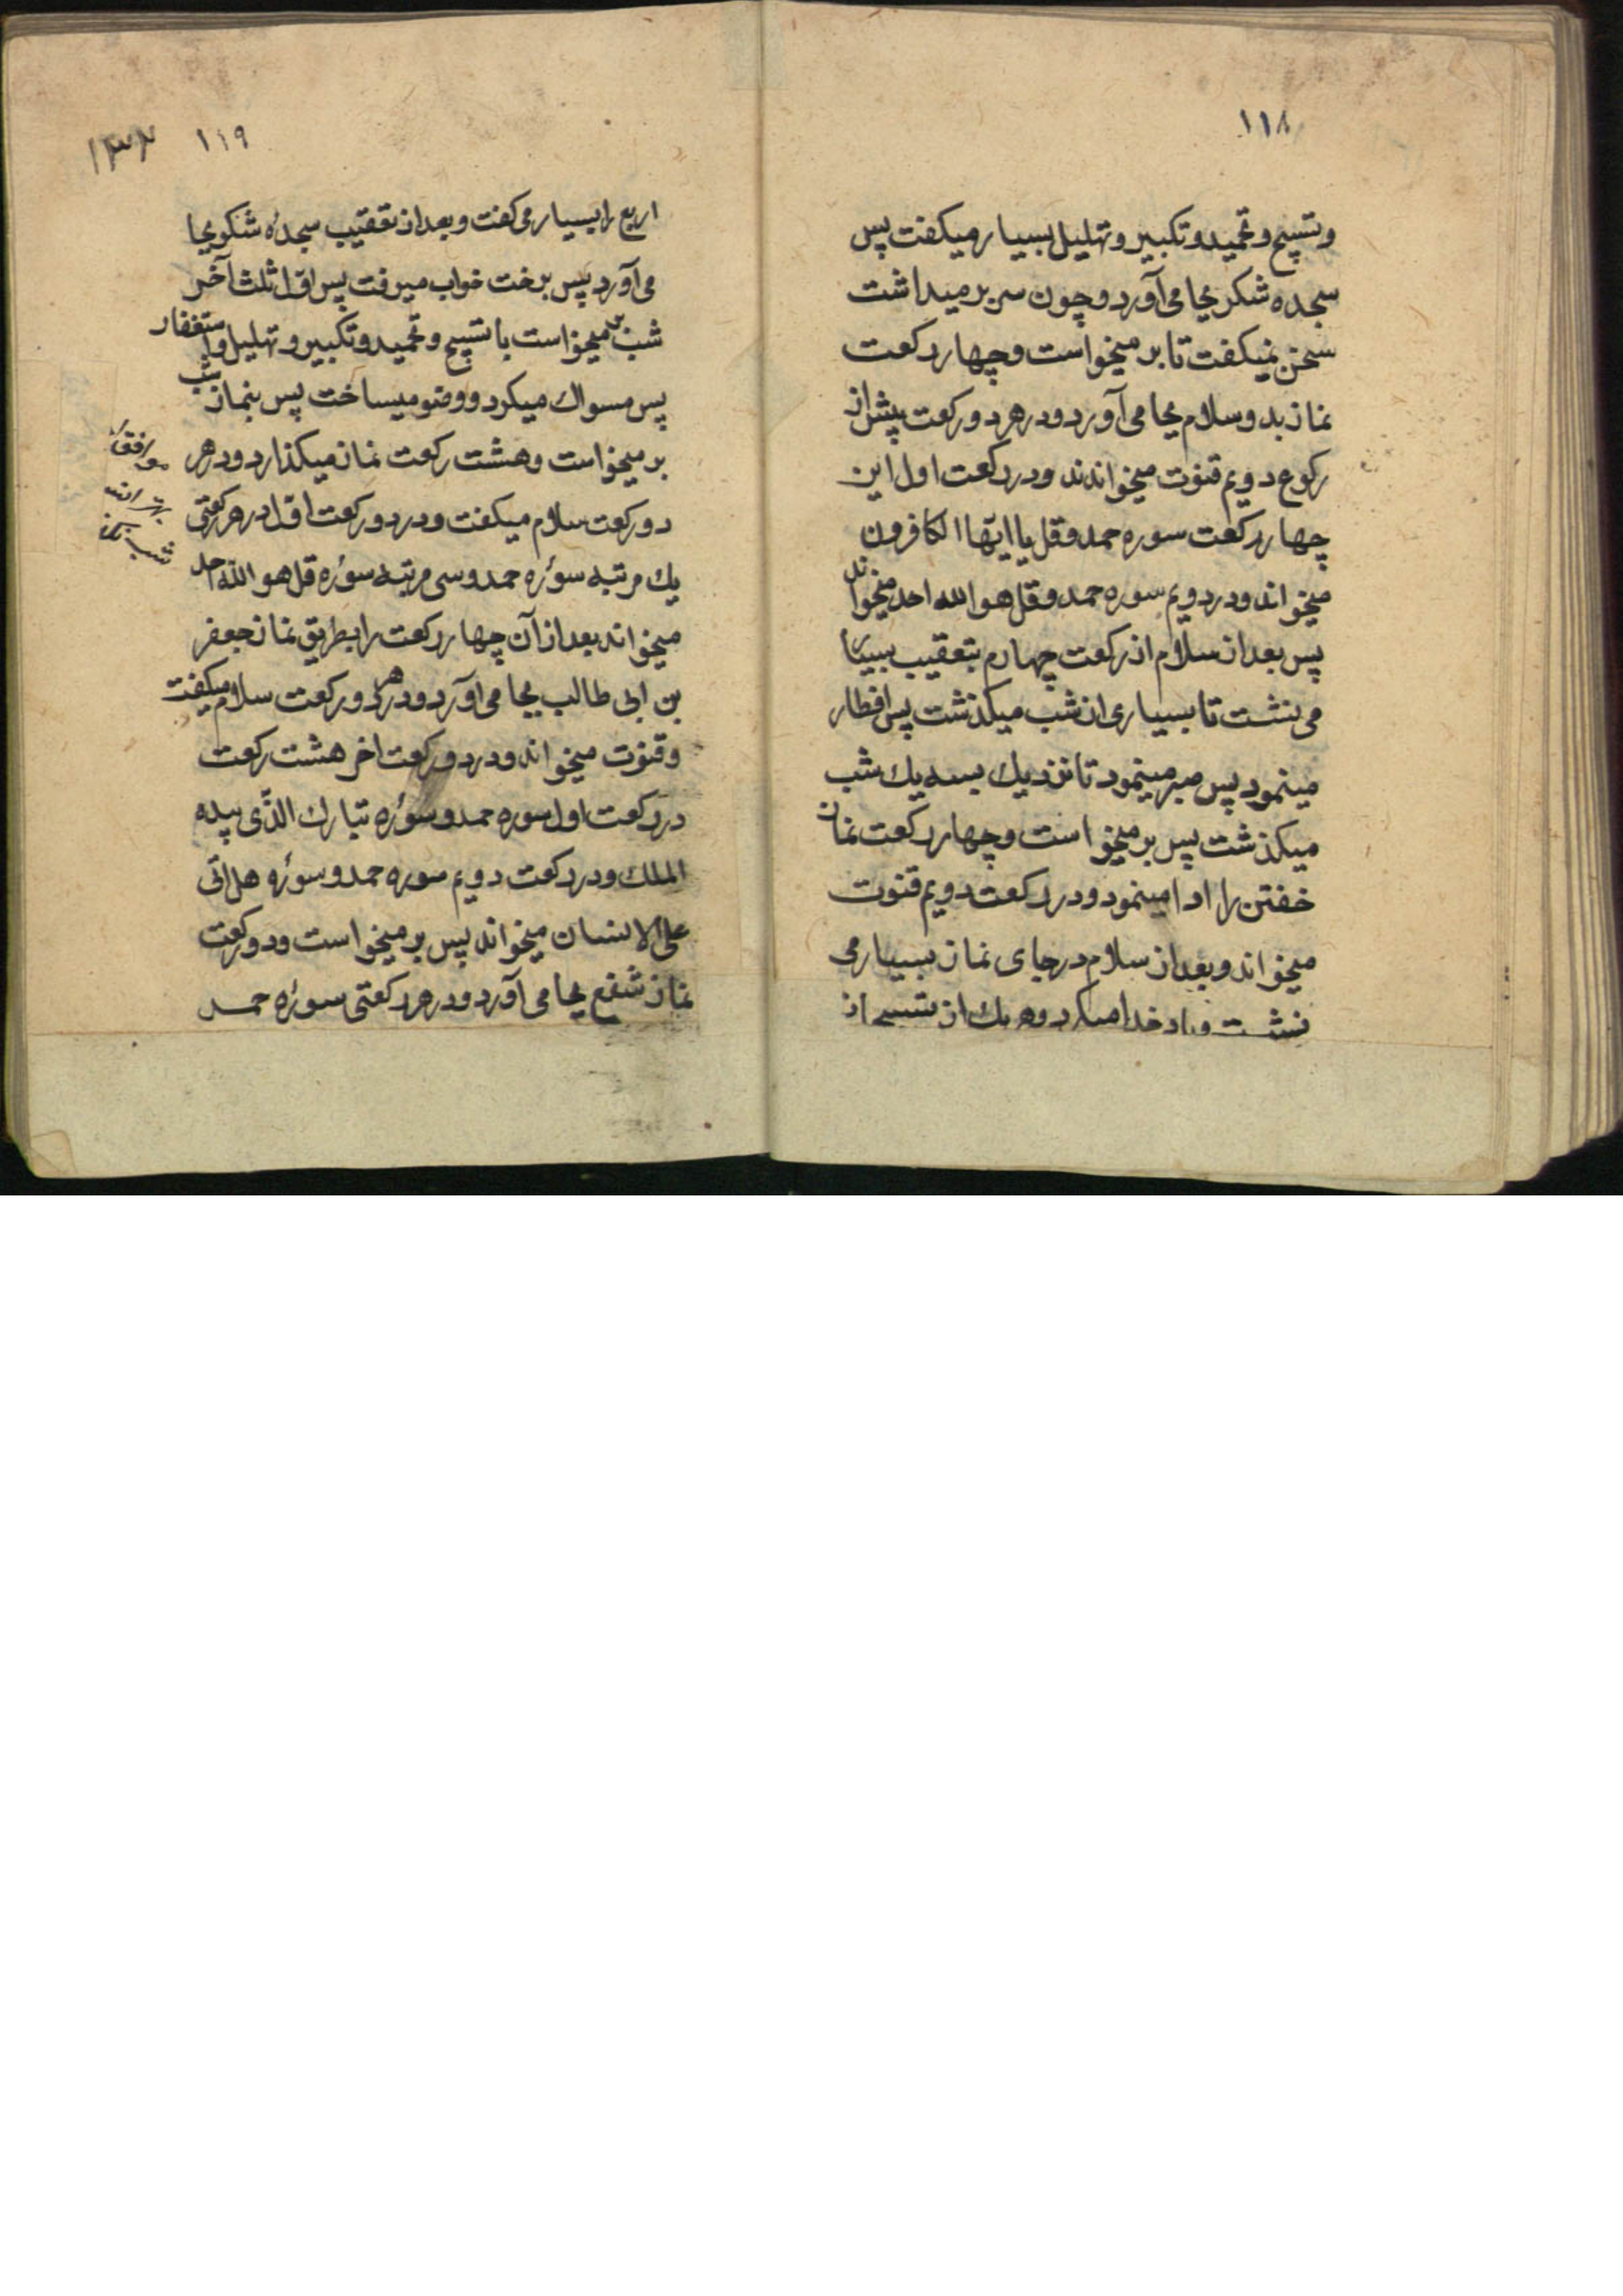 ۱۱۸
وتسبیح وتحمید وتکبیر وتهلیل بسیار میکفت پس
سجده شکر بجا می‌آورد وچون سر بر میداشت
سخن نمیکفت تا بر میخواست وچهار رکعت
نماز بدو سلام بجا می‌آورد ودر هر دو رکعت پیش از
رکوع دویم قنوت میخواندند ودر رکعت اول این
چهار رکعت سوره حمد وقل یا ایّها الکافرون
میخواند ودر دویم سوره حمد وقل هو الله احد میخواند
پس بعد از سلام از رکعت چهارم بتعقیب بسیار
می نشت تا بسیاری از شب میکذشت پس افطار
مینمود پس صبر مینمود تا نزدیک بسه یک شب
میکذشت پس بر میخواست وچهار رکعت نماز
خفتن را ادا مینمود ودر رکعت دویم قنوت
میخواند وبعد از سلام در جای نماز بسیار می
نشت ویاد خدا میکرد وهر یک از تسبیحات
۱۱۹
۱۳۲
اربع را بسیار می کفت وبعد از تعقیب سجدهٔ شکر بجا
می‌آورد پس برخت خواب میرفت پس اوّل ثلث آخر
شب بر میخواست با تسبیح وتحمید وتکبیر وتهلیل واستغفار
پس مسواک میکرد ووضو میساخت پس بنماز شب
بر میخواست وهشت رکعت نماز میکذارد ودر هر
دو رکعت سلام میکفت ودر دو رکعت اوّل در هر رکعتی
یک مرتبه سورهٔ حمد وسی مرتبه سورهٔ قل هو اللّه احد
میخواند بعد از آن چهار رکعت را بطریق نماز جعفر
بن ابی طالب بجا می آورد ودر هر دو رکعت سلام میکفت
وقنوت میخواند ودر دو رکعت اخر هشت رکعت
در رکعت اول سوره حمد وسورهٔ تبارک الذّی بیده
الملک ودر رکعت دویم سوره حمد وسورهٔ هل اتی
علی الانسان میخواند پس بر میخواست ودو رکعت
نماز شفع بجا می آورد ودر هر رکعتی سورهٔ حمد
شب